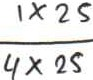 1 × 25
4 × 25